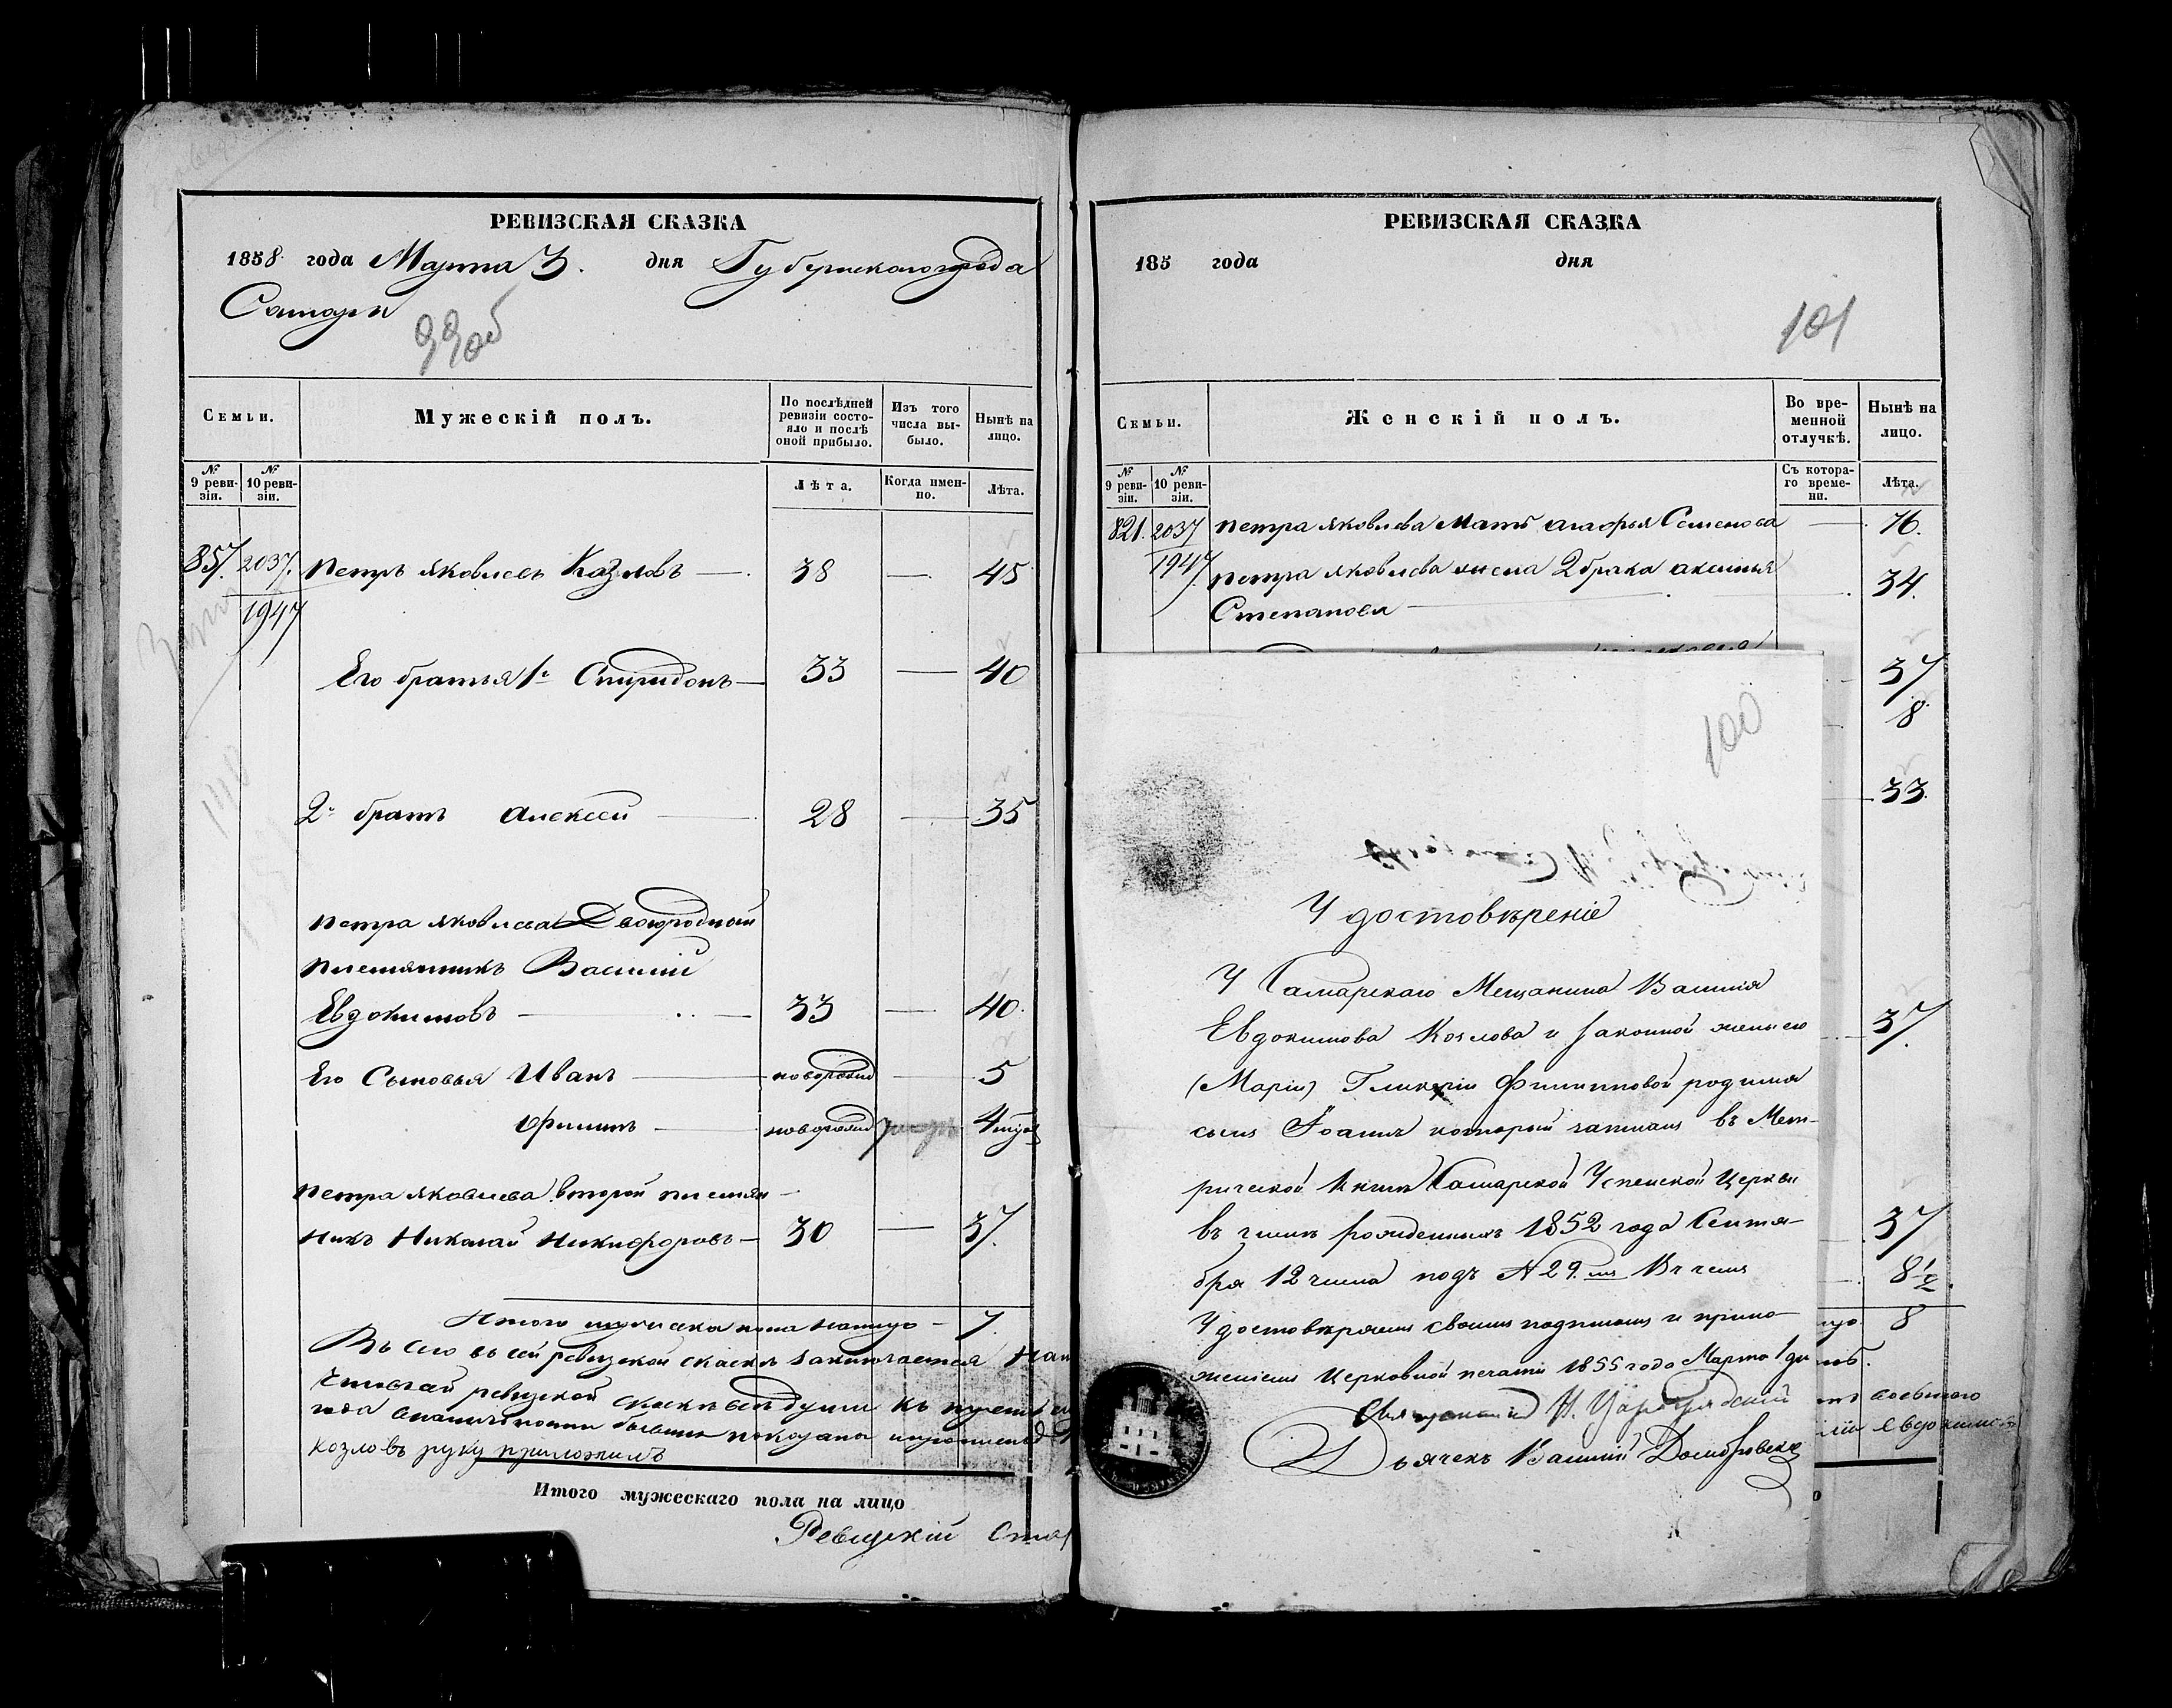 РЕВИЗСКАЯ СКАЗКА
1858 года Марта 3. дня Губернскаго города
Самары
99об
Семьи.
Мужескій полъ.
По послѣдней ревизіи состояло и послѣ оной прибыло.
Изъ того числа выбыло.
Нынѣ на лицо.
№ 9 ревизіи.
№ 10 ревизіи.
Лѣта.
Когда именно.
Лѣта.
857. 2037. Петръ Яковлевъ Козловъ — 38 — 45
1947
Его братья 1й Спиридонъ — 33 — 40
2й братъ Алексей — 28 — 35
Петра Яковлева Двоюродный
племянникъ Василий
Евдокимовъ — 33 — 40.
Его Сыновья Иванъ — новорожд — 5
Филипъ — новорожд 4
Петра Яковлева второй племян-
никъ Николай Никифоровъ — 30 — 37.
Итого мужеска пола налицо — 7.
Въ сей ревизской сказкѣ заключается
ревизской сказкѣ все души къ
года бывши показаны
Козловъ руку приложилъ
Итого мужескаго пола на лицо
Ревизскій
РЕВИЗСКАЯ СКАЗКА
185 года дня
101
Семьи.
Женскій полъ.
Во временной отлучкѣ.
Нынѣ на лицо.
№ 9 ревизіи.
№ 10 ревизіи.
Съ котораго времени.
Лѣта.
821. 2037 Петра Яковлева Мать Агафья Семенова — 76.
1947 Петра Яковлева жена 2 брака Аксинья
Степанова — 34.
37
8
33
37.
37
8½
8
100
Удостовѣреніе
У Самарскаго Мещанина Василія
Евдокимова Козлова и законной жены его
(Маріи) Гликеріи Филипповой родился
сынъ Іоаннъ который записанъ въ Мет-
рической Книгѣ Самарской Успенской Церкви
въ числѣ рожденныхъ 1852 года Сентя-
бря 12 числа подъ № 29. мъ Въ чемъ
Удостовѣряемъ своимъ подписомъ и прило-
женіемъ Церковной печати 1855 года Марта 1 дн
Священникъ Н.
Дьячекъ Василій Домбровск